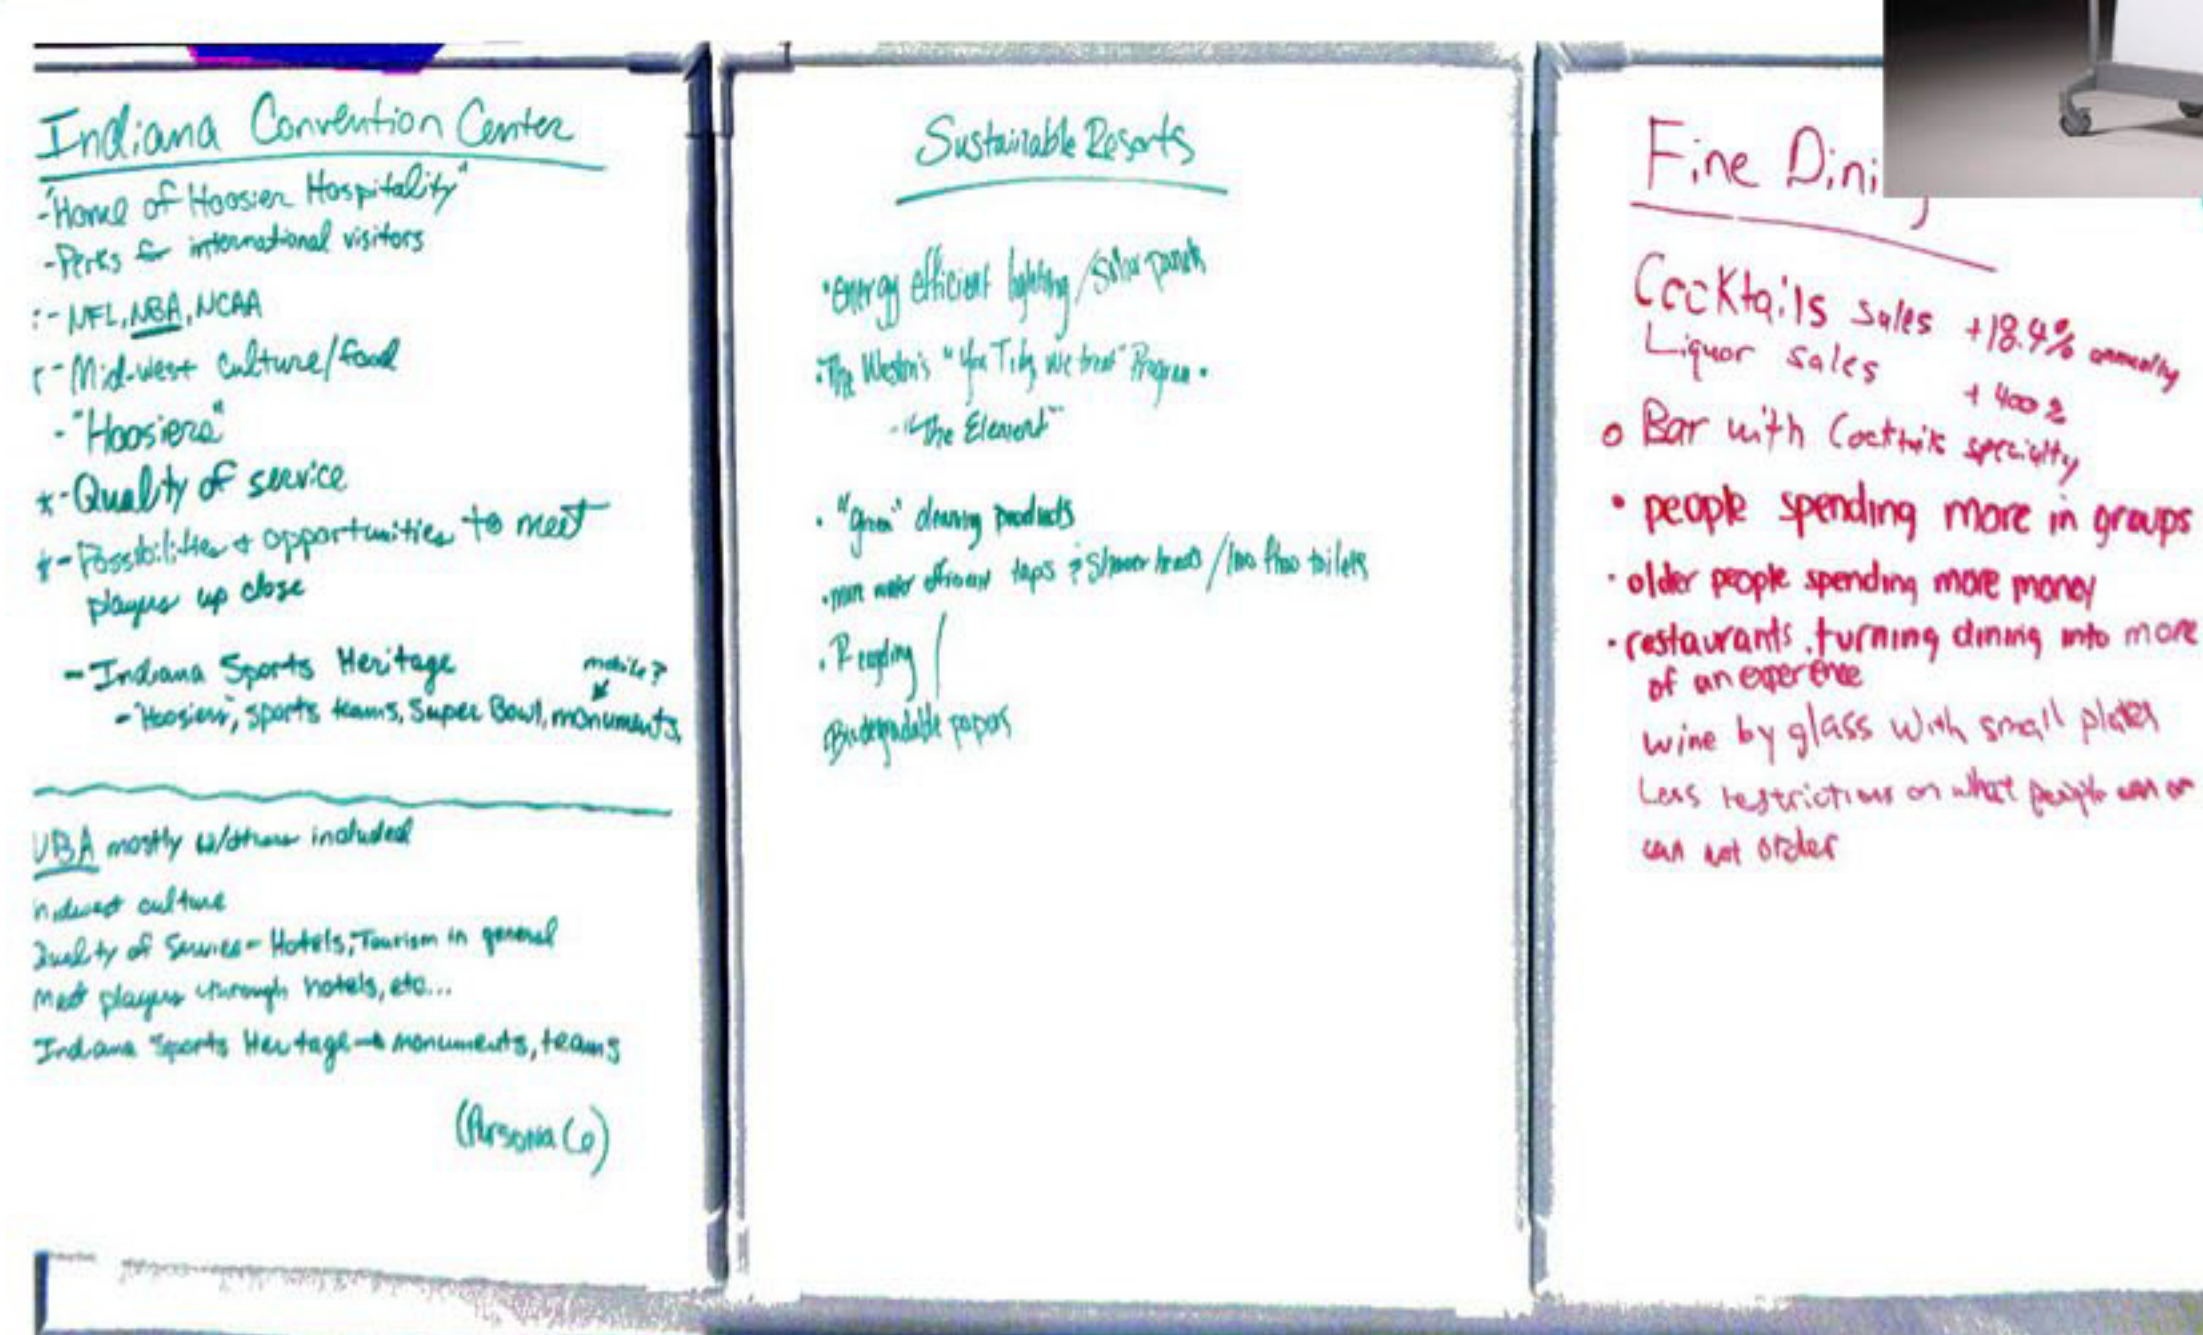 Indiana Convention Center
- "Home of Hoosier Hospitality"
- Perks for international visitors
- NFL, NBA, NCAA
- Mid-west culture/food
- "Hoosiers"
*- Quality of service
*- Possibilities & opportunities to meet
players up close
- Indiana Sports Heritage
mobile?
- "Hoosiers", sports teams, Super Bowl, monuments,
mostly w/others included
midwest culture
Quality of Service - Hotels, Tourism in general
meet players through hotels, etc...
Indiana Sports Heritage → monuments, teams
Sustainable Resorts
• energy efficient lighting / Solar panels
• The Westin's " Program •
- "The Element"
• "green" cleaning products
• more water efficient taps & Shower heads / low flow toilets
• Recycling /
Biodegradable papers
Fine Dini
Cocktails sales +18.4% annually
Liquor sales + 400%
o Bar with Cocktails specialty
• people spending more in groups
• older people spending more money
• restaurants turning dining into more
of an experience
wine by glass with small plates
Less restrictions on what people can or
can not order